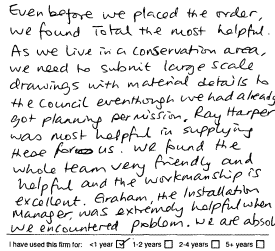 Even before we placed the order,
we found Total the most helpful.
As we live in a conservation area,
we need to submit large scale
drawings with material details to
the council eventhough we had already
got planning permission. Ray Harper
was most helpful in supplying
these for us. We found the
whole team very friendly and
helpful and the workmanship is
excellent. Graham, the Installation
Manager, was extremely helpful when
we encountered problem. We are absol
I have used this firm for: <1 year ☑ 1-2 years ☐ 2-4 years ☐ 5+ years ☐